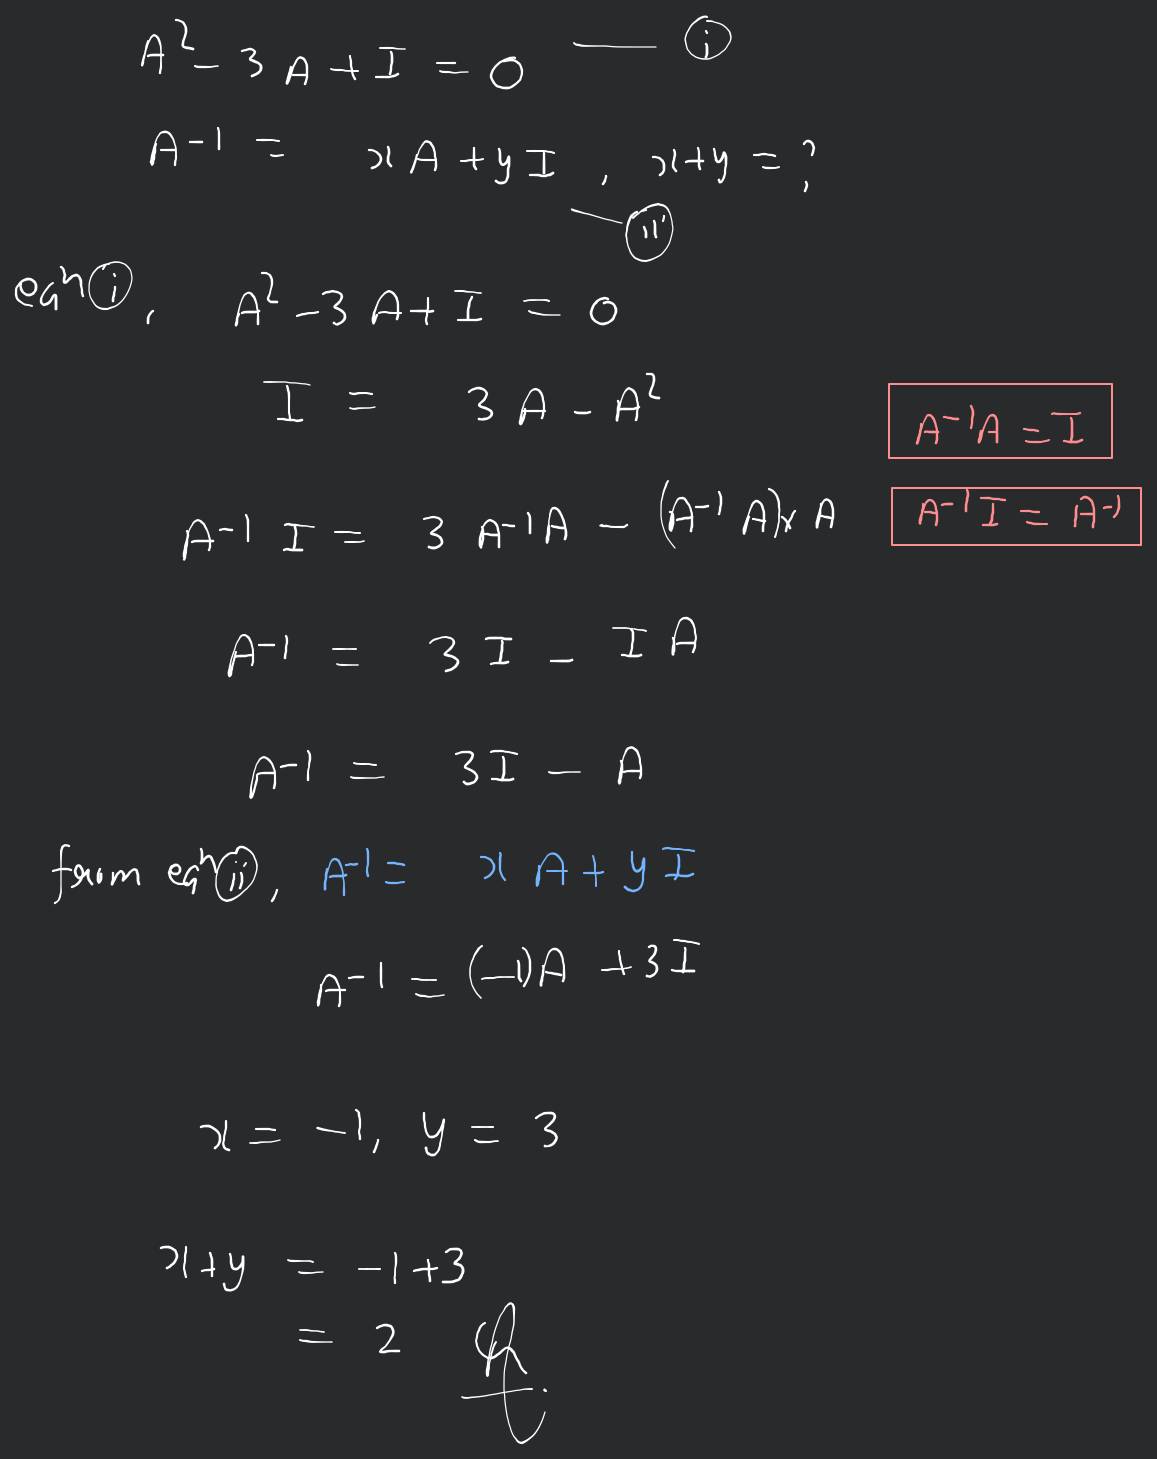 A² - 3A + I = 0 — (i)
A⁻¹ = xA + yI, x+y = ?
— (ii)
eqⁿ (i), A² - 3A + I = 0
I = 3A - A²
A⁻¹A = I
A⁻¹ I = 3 A⁻¹A - (A⁻¹ A) x A
A⁻¹ I = A⁻¹
A⁻¹ = 3 I - I A
A⁻¹ = 3I - A
from eqⁿ (ii), A⁻¹ = xA + yI
A⁻¹ = (-1)A + 3I
x = -1, y = 3
x+y = -1+3
= 2